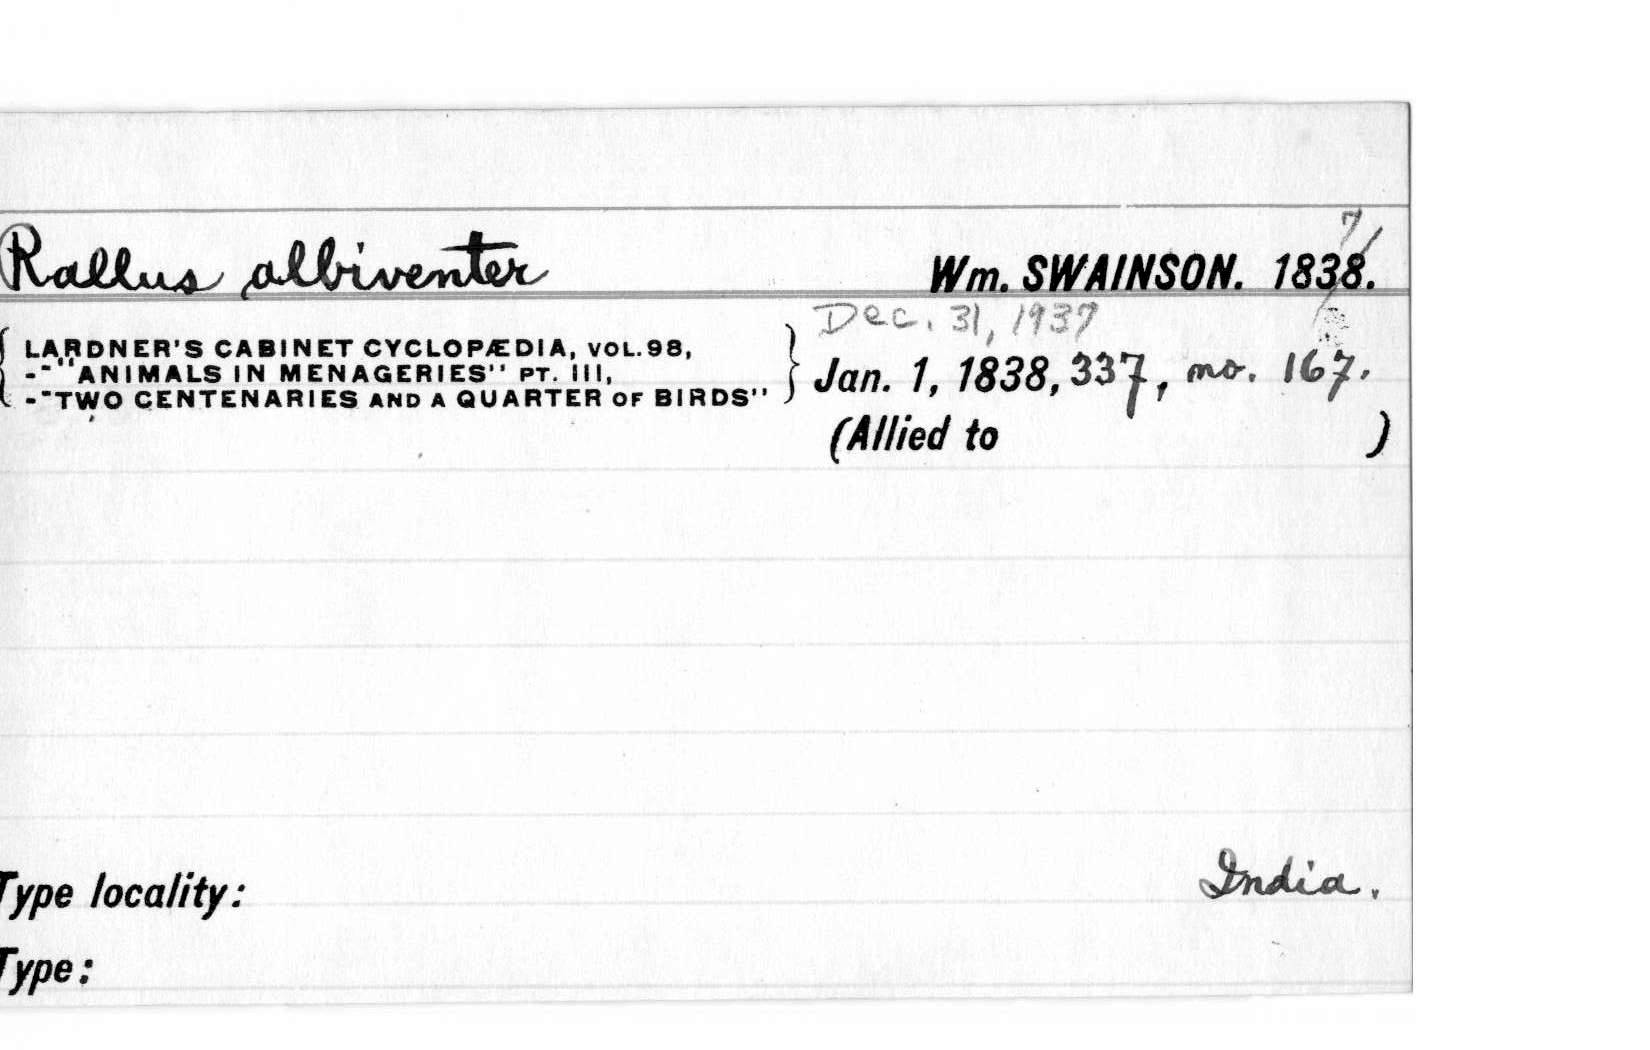 7/
Rallus albiventer Wm. SWAINSON. 1838.
Dec. 31, 1937
LARDNER'S CABINET CYCLOPÆDIA, VOL.98,
--"ANIMALS IN MENAGERIES" PT. III,
--"TWO CENTENARIES AND A QUARTER OF BIRDS"
} Jan. 1, 1838, 337, no. 167.
(Allied to )
Type locality: India.
Type: